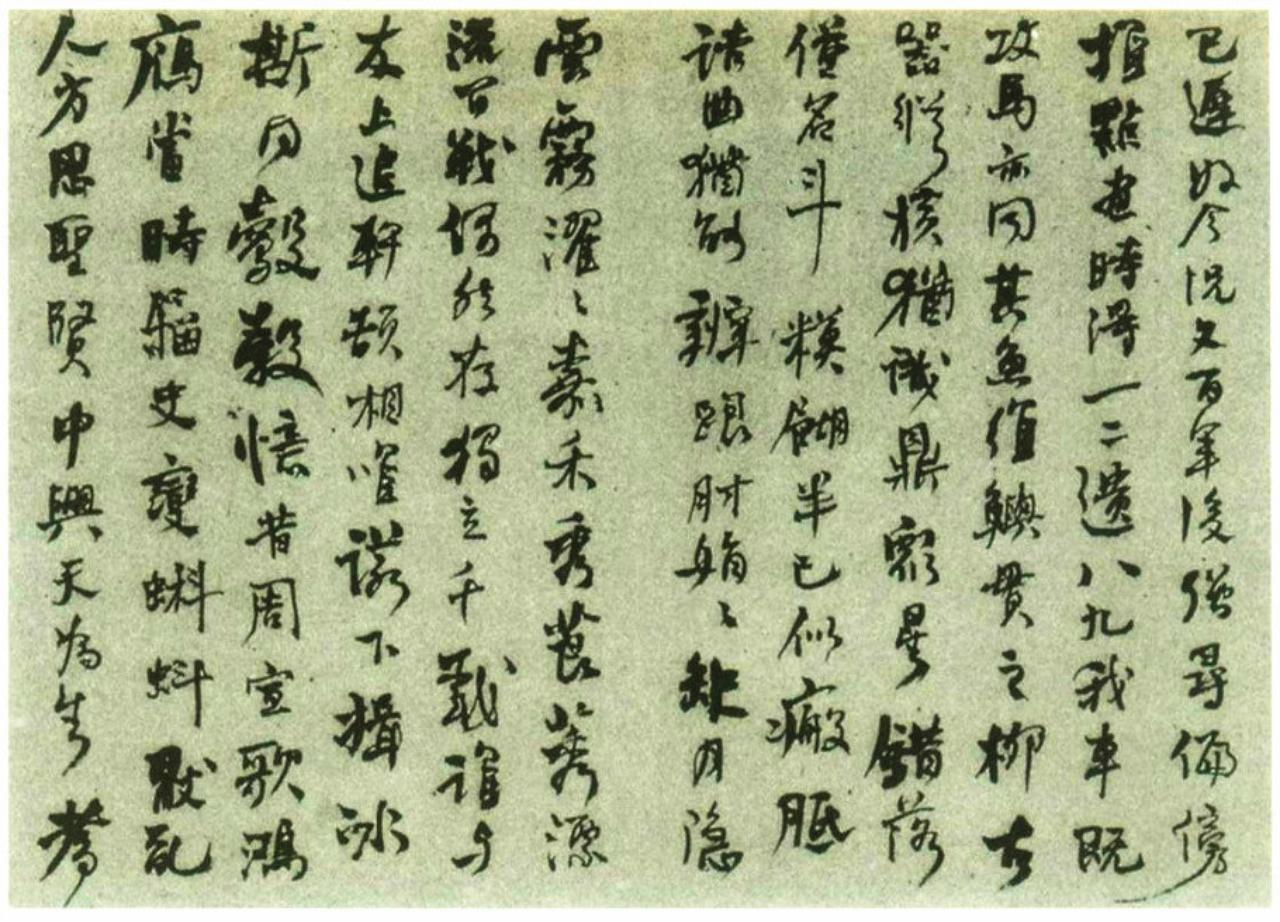 已遲如今况又百年後强尋偏傍
指點畫時得一二遺八九我車既
攻馬亦同其魚維鱮貫之柳古
器縱横猶識鼎衆星錯落
僅名斗糢餬半已似瘢胝
詰曲猶能辨跟肘娟〻缺月隐
雲霧濯〻嘉禾秀莨莠漂
流百戰偶然存獨立千載誰与
友上追軒頡相唯諾下揖冰
斯同鷇鷇憶昔周宣歌鴻
鴈當時籀史變蝌蚪厭亂
人方思聖賢中興天為生耇